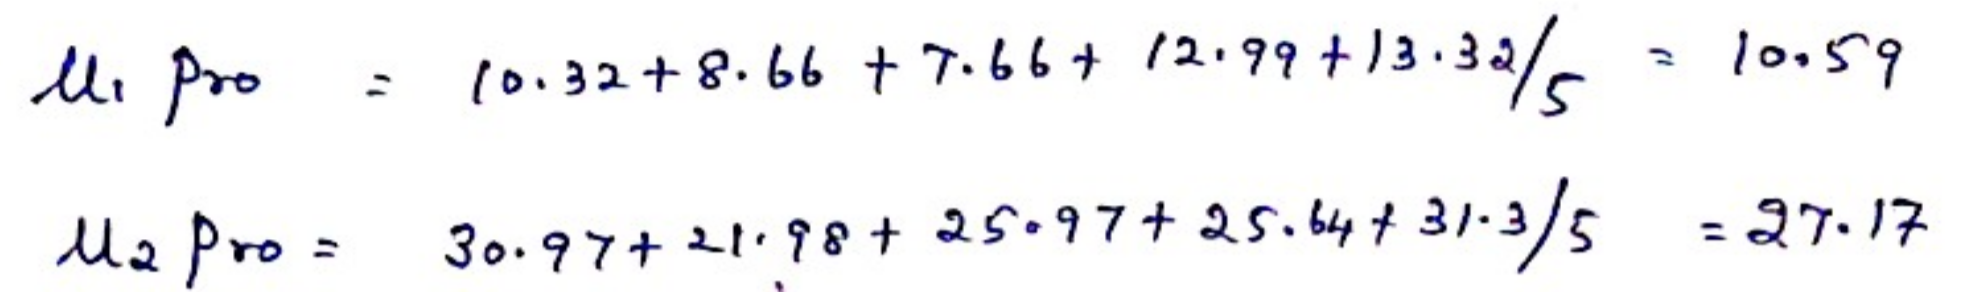 μ₁ pro = 10.32+8.66+7.66+ 12.99+13.32/5 = 10.59
μ₂ pro = 30.97+21.98+25.97+25.64+31.3/5 = 27.17